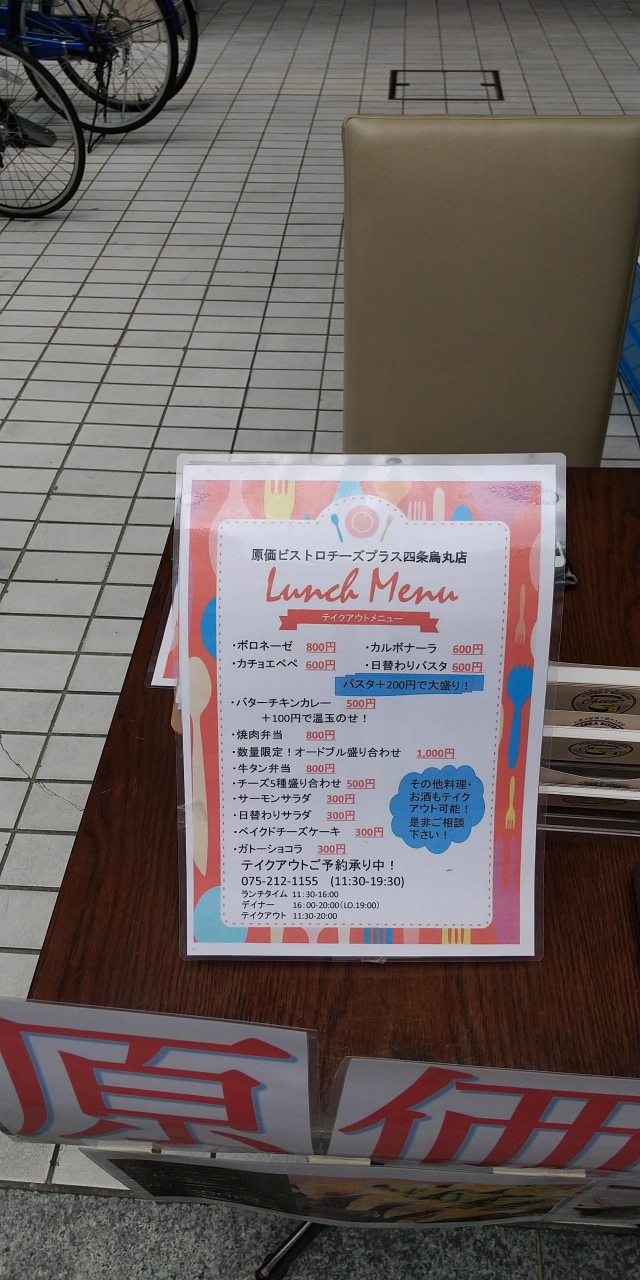 原価ビストロチーズプラス四条烏丸店
Lunch Menu
テイクアウトメニュー
・ボロネーゼ 800円 ・カルボナーラ 600円
・カチョエペペ 600円 ・日替わりパスタ 600円
パスタ+200円で大盛り！
・バターチキンカレー 500円
+100円で温玉のせ！
・焼肉弁当 800円
・数量限定！オードブル盛り合わせ 1,000円
・牛タン弁当 800円
・チーズ5種盛り合わせ 500円
・サーモンサラダ 300円
・日替わりサラダ 300円
・ベイクドチーズケーキ 300円
・ガトーショコラ 300円
その他料理・
お酒もテイク
アウト可能！
是非ご相談
下さい！
テイクアウトご予約承り中！
075-212-1155 (11:30-19:30)
ランチタイム 11:30-16:00
ディナー 16:00-20:00(LO.19:00)
テイクアウト 11:30-20:00
原価